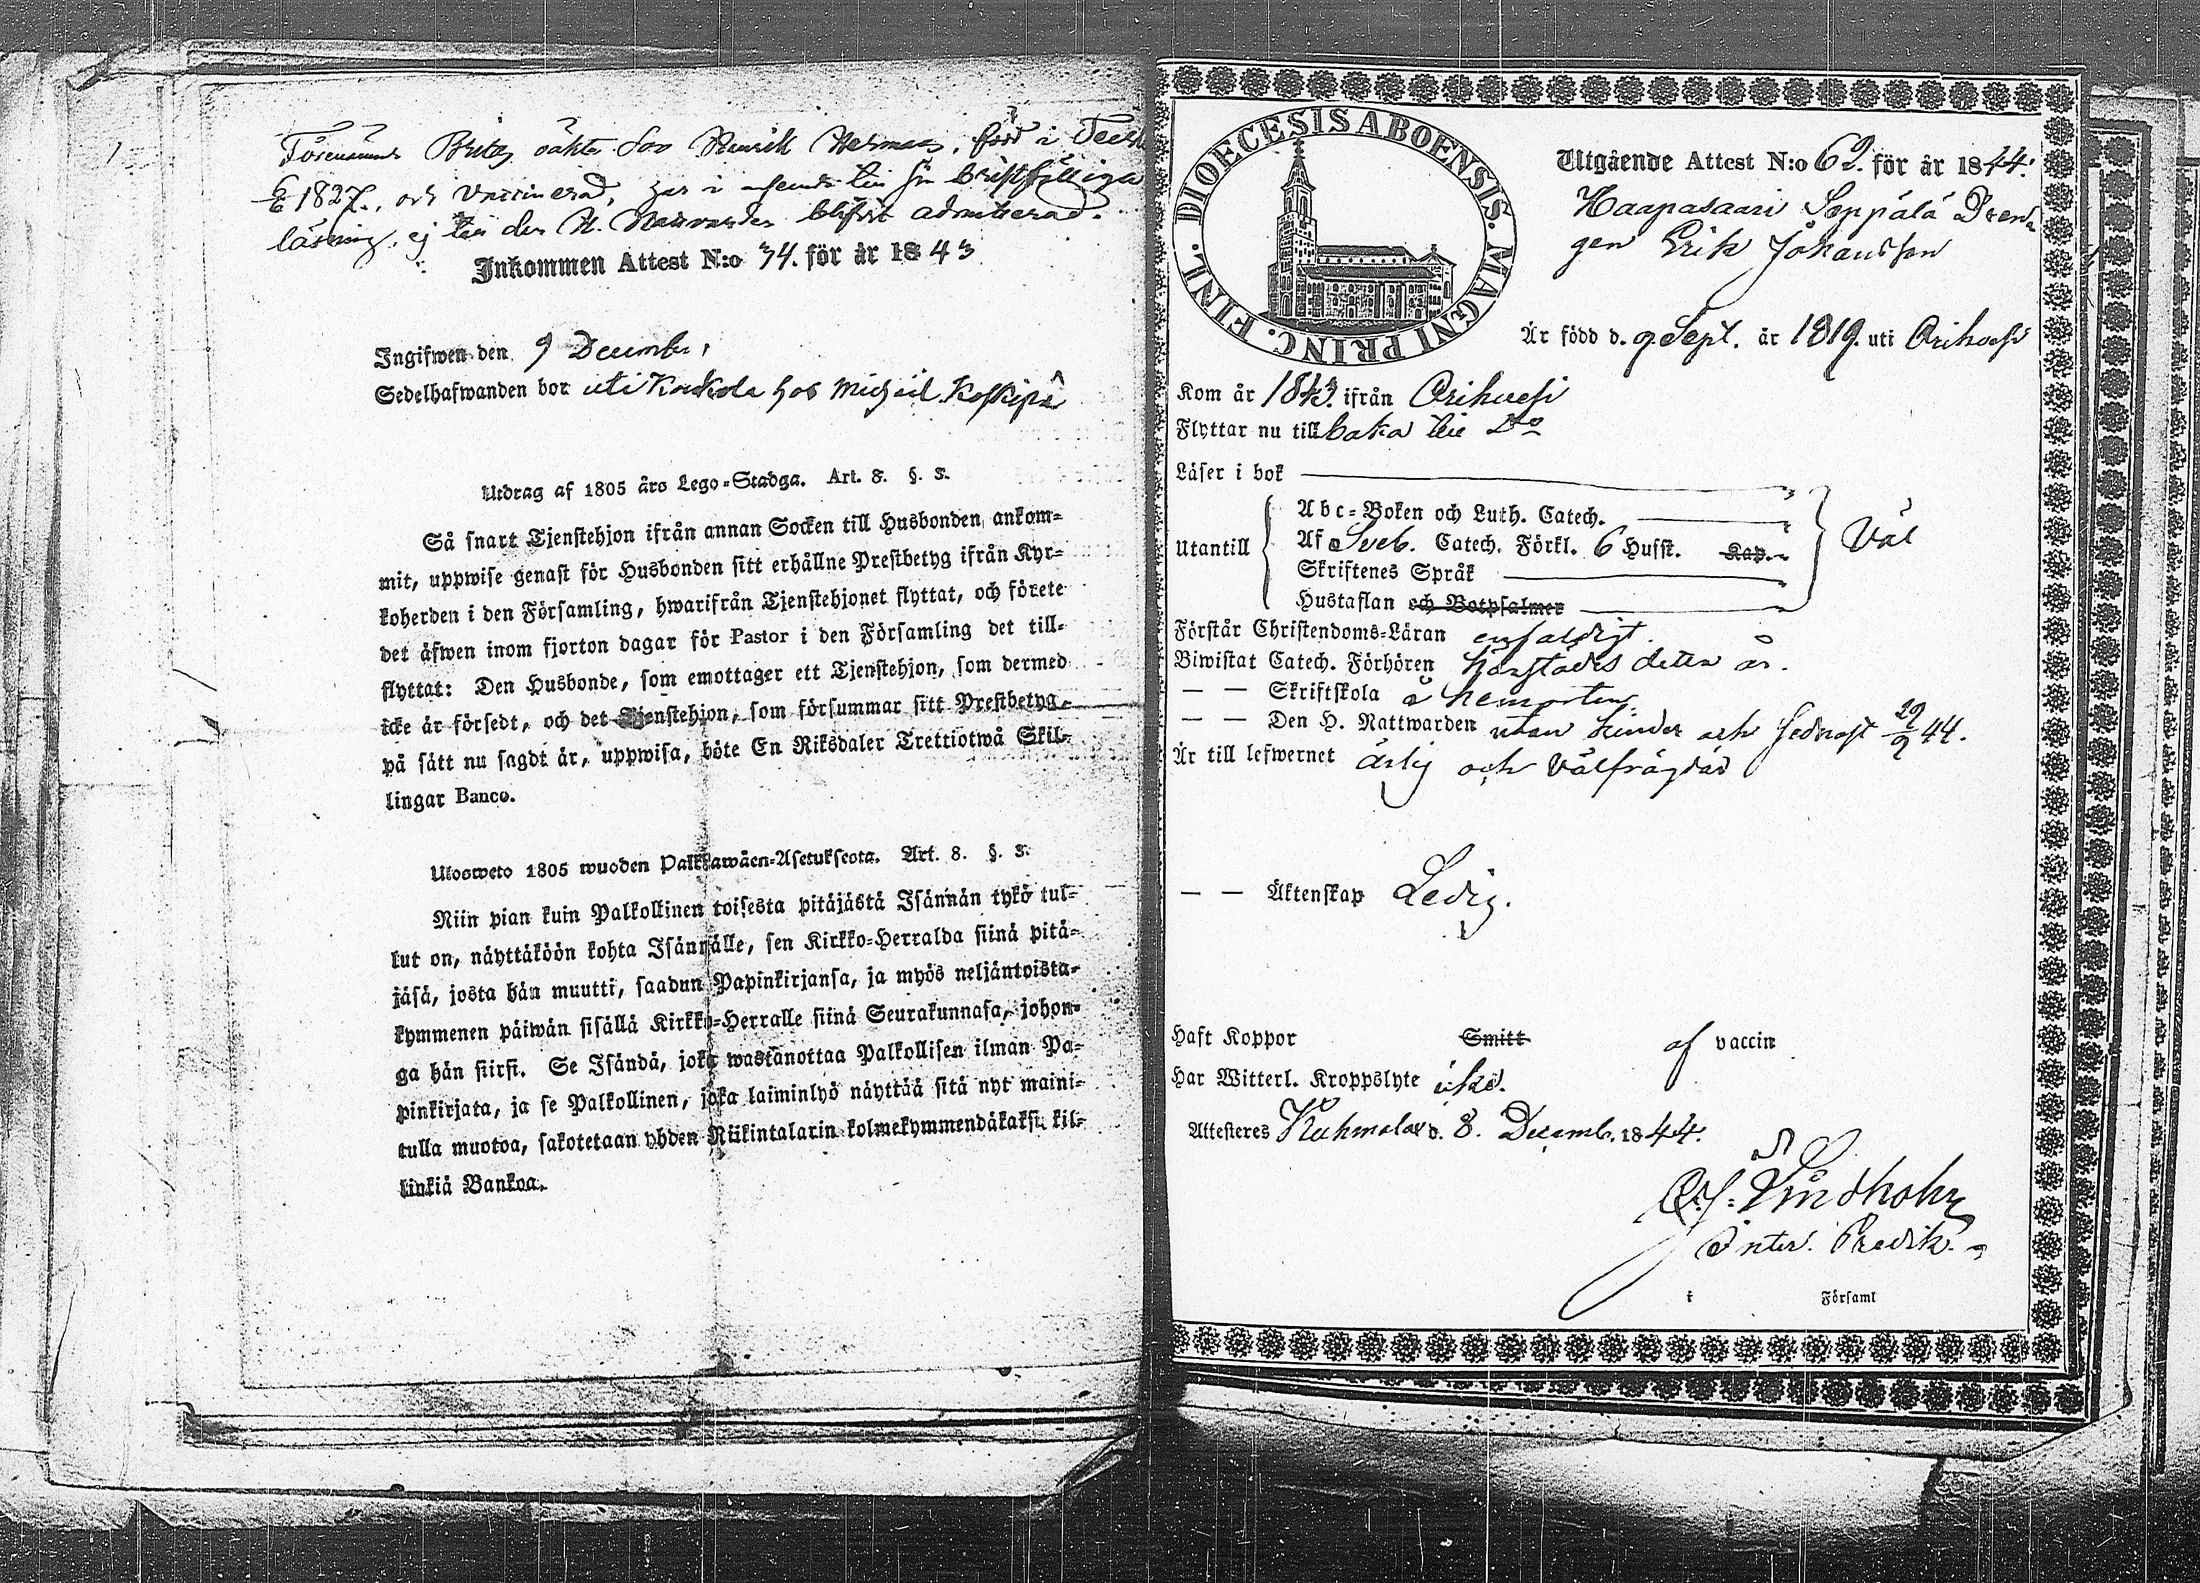 Förenämnde Britas oäkta Son Henrik Herman, född i
1827, och vaccinerad, har i anseende till sin bristfälliga
läsning, ej till den H. Nattvarden blifvit admitterad.
Inkommen Attest N:o 34. för år 1843
Ingifwen den 9 December,
Sedelhafwanden bor uti Koukola hos Michael Koskipä
Utdrag af 1805 års Lego-Stadga. Art. 8. §. 3.
Så snart Tjenstehjon ifrån annan Socken till Husbonden ankom-
mit, uppwise genast för Husbonden sitt erhållne Prestbetyg ifrån Kyr-
koherden i den Församling, hwarifrån Tjenstehjonet flyttat, och förete
det äfwen inom fjorton dagar för Pastor i den Församling det till-
flyttat: Den Husbonde, som emottager ett Tjenstehjon, som dermed
icke är försedt, och det Tjenstehjon, som försummar sitt Prestbetyg,
på sätt nu sagdt är, uppwisa, böte En Riksdaler Trettiotwå Skil-
lingar Banco.
Ulosweto 1805 wuoden Palkkawäen-Asetuksesta. Art. 8. §. 3.
Niin pian kuin Palkollinen toisesta pitäjästä Isännän tykö tul-
lut on, näyttäköön kohta Isännälle, sen Kirkko-Herralda siinä pitä-
jäsä, josta hän muutti, saadun Papinkirjansa, ja myös neljäntoista-
kymmenen päiwän sisällä Kirkko-Herralle siinä Seurakunnasa, johon-
ga hän siirsi. Se Isändä, joka wastanottaa Palkollisen ilman Pa-
pinkirjata, ja se Palkollinen, joka laiminlyö näyttää sitä nyt maini-
tulla muotoa, sakotetaan yhden Riikintalarin kolmekymmendäkaksi kil-
linkiä Bankoa.
DIOECESIS ABOENSIS. MAGNI PRINC. FINL.
Utgående Attest N:o 62. för år 1844.
Haapasaari Seppälä Dren-
gen Erik Johansson
Är född d. 9 Sept. år 1819. uti Orihvesi
Kom år 1843. ifrån Orihvesi
Flyttar nu tillbaka till Do
Läser i bok
Abc-Boken och Luth. Catech.
Utantill Af Sveb. Catech. Förkl. 6 Hufst. Kap. Väl
Skriftenes Språk
Hustaflan och Botpsalmer
Förstår Christendoms-Läran enfaldigt.
Biwistat Catech. Förhören härstädes detta år.
— — Skriftskola å hemorten
— — Den H. Nattwarden utan hinder och sednast 29/9 44.
Är till lefwernet ärlig och välfrägdad
— — Äktenskap Ledig.
Haft Koppor Smitt af vaccin
Har Witterl. Kroppslyte icke.
Attesteres Kuhmalax d. 8. Decemb. 1844.
C. J. Lindholm
Inter. Predik.
i Församl